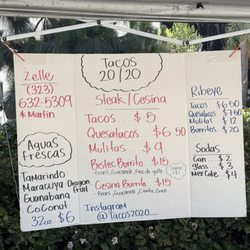 Zelle
(323)
632-5309
* Martin
Aguas
Frescas
Tamarindo
Maracuya Dragon
fruit
Guanabana
Coconut
32oz $6
Tacos
20/20
Steak/Cesina
Tacos $5
Quesatacos $6.50
Mulitas $9
Bistec Burrito $15
Cesina Burrito $15
Instagram
@Tacos2020
Ribeye
Tacos $6.50
Quesatacos $7.50
Mulitas $12
Burritos $20
Sodas
Can = 2
Glass $3
Mex Coke $4